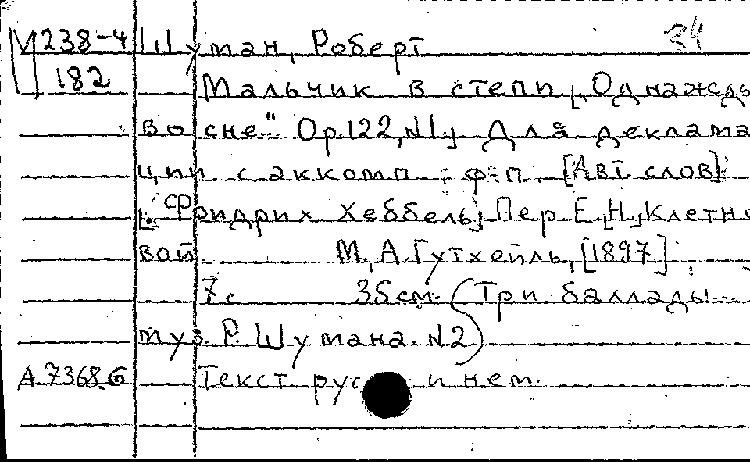 М238-4 Шуман, Роберт 34
182 Мальчик в степи „Однажды
во сне" Op.122,N1, Для деклама
ции с аккомп. ф-п. [Авт слов]:
[: Фридрих Хеббель; Пер. Е. Н. Клетно
вой М., А. Гутхейль, [1897]
7с 35см. (Три баллады
муз. Р. Шумана. N2)
А.7368.G Текст рус и нем.